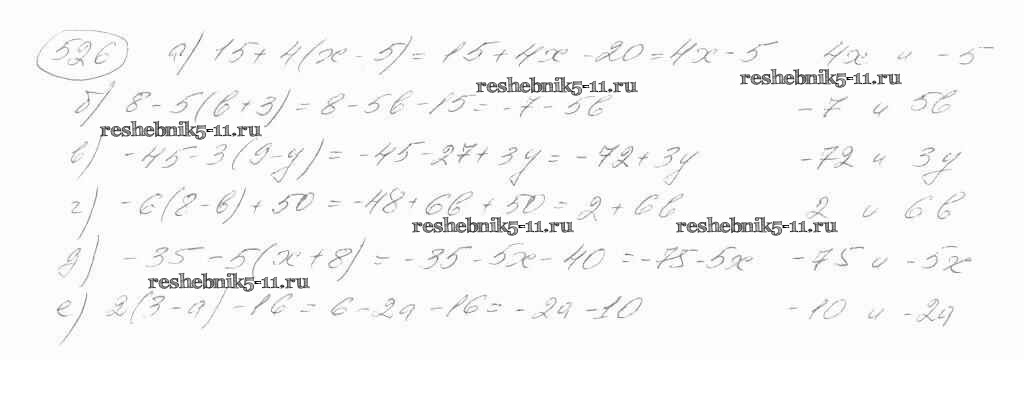 526 а) 15 + 4(x - 5) = 15 + 4x - 20 = 4x - 5 4x и -5
reshebnik5-11.ru reshebnik5-11.ru
б) 8 - 5(b + 3) = 8 - 5b - 15 = -7 - 5b -7 и 5b
reshebnik5-11.ru
в) -45 - 3(9 - y) = -45 - 27 + 3y = -72 + 3y -72 и 3y
г) -6(8 - b) + 50 = -48 + 6b + 50 = 2 + 6b 2 и 6b
reshebnik5-11.ru reshebnik5-11.ru
д) -35 - 5(x + 8) = -35 - 5x - 40 = -75 - 5x -75 и -5x
reshebnik5-11.ru
е) 2(3 - a) - 16 = 6 - 2a - 16 = -2a - 10 -10 и -2a